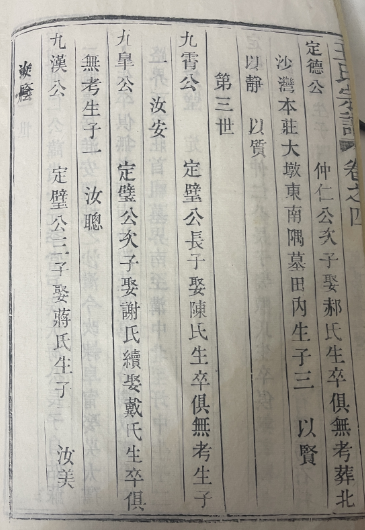 氏宗譜 卷之四
定德公 仲仁公次子娶郝氏生卒俱無考葬北
沙灣本莊大墩東南隅墓田內生子三 以賢
以靜 以質
第三世
九霄公 定璧公長子娶陳氏生卒俱無考生子
一 汝安
九皋公 定璧公次子娶謝氏續娶戴氏生卒俱
無考生子一 汝聰
九漢公 定璧公三子娶蔣氏生子 汝美
汝